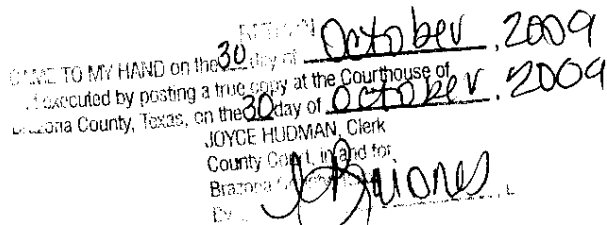 RETURN
CAME TO MY HAND on the 30 day of October, 2009
executed by posting a true copy at the Courthouse of
Brazoria County, Texas, on the 30 day of October, 2009
JOYCE HUDMAN, Clerk
County Court, in and for
Brazoria County
By